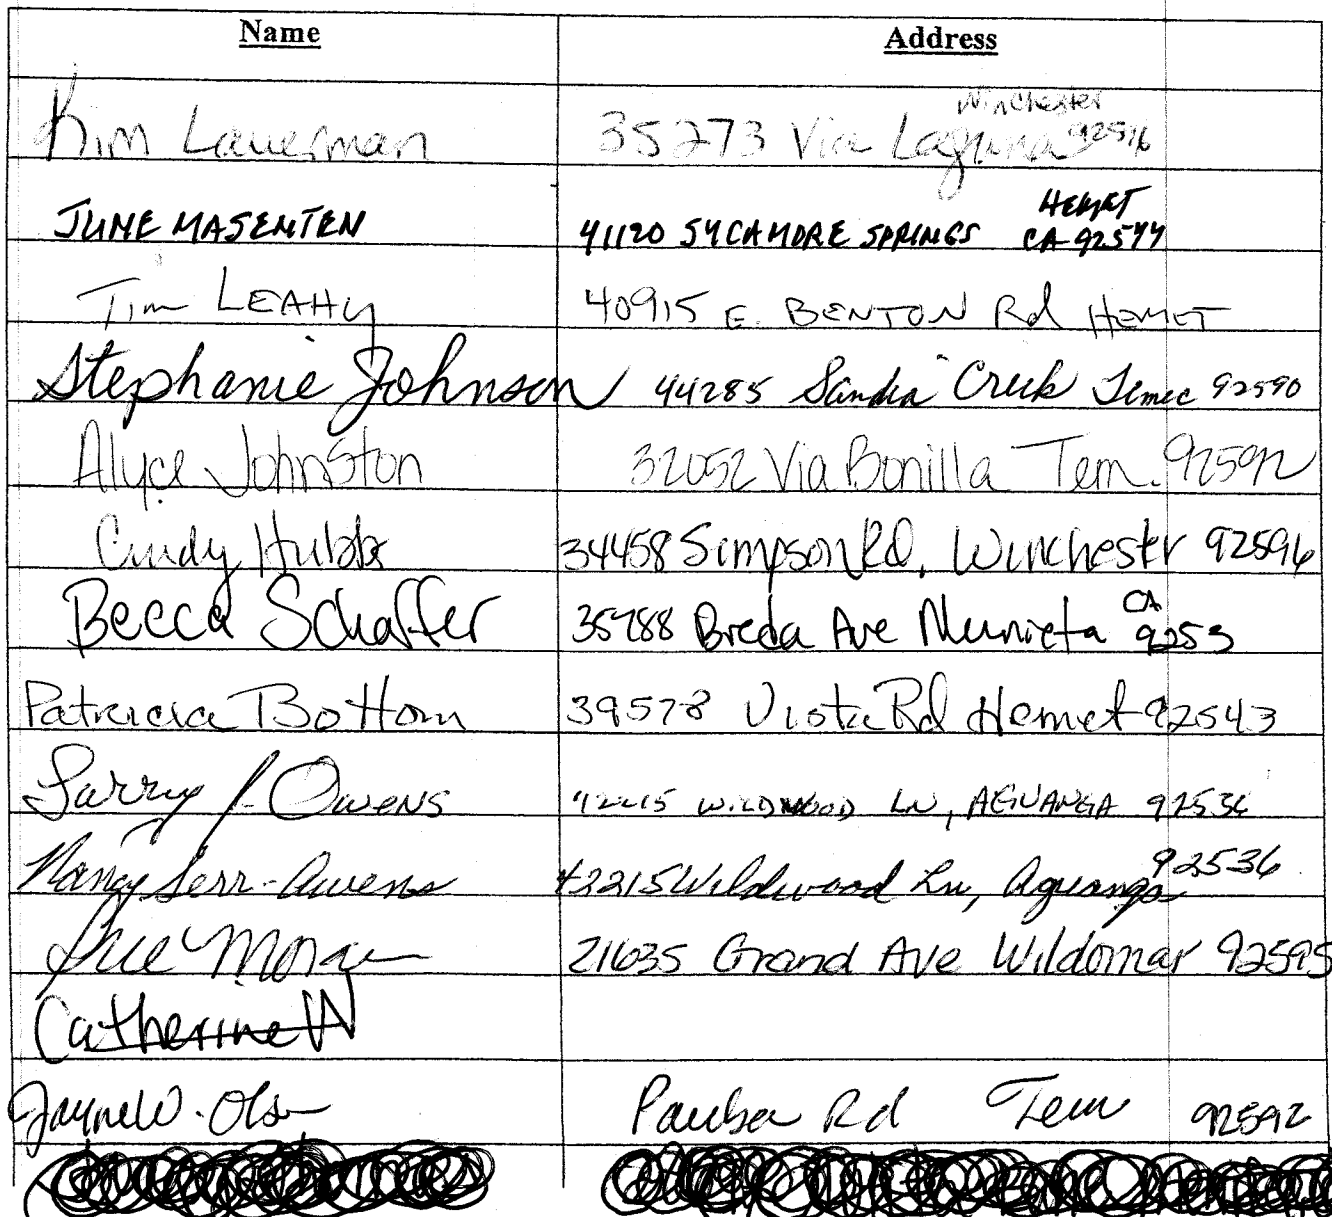 Name Address
Kim Lauerman 35273 Via Laguna Winchester 92596
JUNE MASENTEN 41120 SYCAMORE SPRINGS HEMET CA 92544
Tim LEAHY 40915 E. BENTON Rd HEMET
Stephanie Johnson 44285 Sandia Creek Temec 92590
Alyce Johnston 32052 Via Bonilla Tem. 92592
Cindy Hubbs 34458 Simpson Rd, Winchestr 92596
Becca Schaffer 35788 Breda Ave Murrieta CA 9253
Patricia Bottom 39578 Vista Rd Hemet 92543
Larry J. Owens 42215 WILDWOOD LN, AGUANGA 92536
Nancy Serr-Owens 42215 Wildwood Ln, Aguanga 92536
Sue Morgan 21635 Grand Ave Wildomar 92595
Catherine W
Jayne W. Olsen Pauba Rd Tem 92592